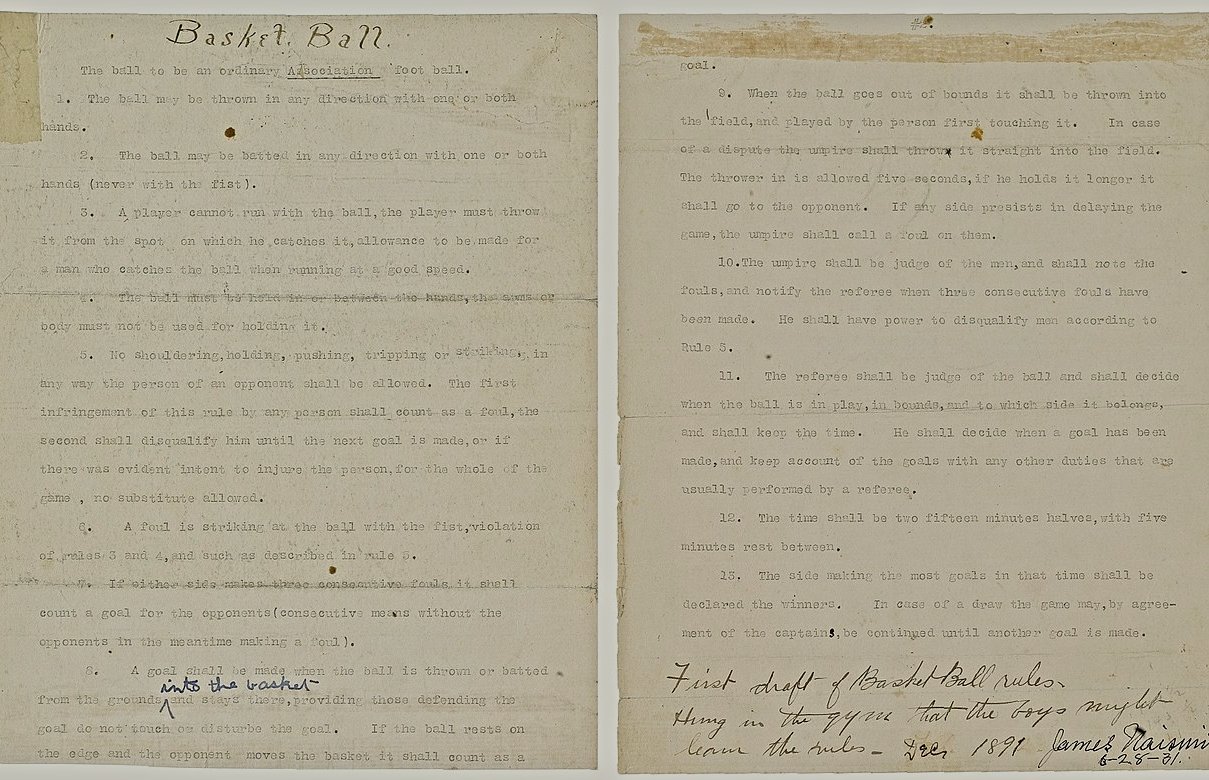 Basket Ball.
The ball to be an ordinary Association foot ball.
1. The ball may be thrown in any direction with one or both
hands.
2. The ball may be batted in any direction with one or both
hands (never with the fist).
3. A player cannot run with the ball, the player must throw
it from the spot on which he catches it, allowance to be made for
a man who catches the ball when running at a good speed.
4. The ball must be held in or between the hands, the arms or
body must not be used for holding it.
5. No shouldering, holding, pushing, tripping or striking, in
any way the person of an opponent shall be allowed. The first
infringement of this rule by any person shall count as a foul, the
second shall disqualify him until the next goal is made, or if
there was evident intent to injure the person, for the whole of the
game, no substitute allowed.
6. A foul is striking at the ball with the fist, violation
of rules 3 and 4, and such as described in rule 5.
7. If either side makes three consecutive fouls, it shall
count a goal for the opponents (consecutive means without the
opponents in the meantime making a foul).
8. A goal shall be made when the ball is thrown or batted
into the basket
from the grounds and stays there, providing those defending the
goal do not touch or disturbe the goal. If the ball rests on
the edge and the opponent moves the basket it shall count as a
#2.
goal.
9. When the ball goes out of bounds it shall be thrown into
the field, and played by the person first touching it. In case
of a dispute the umpire shall throw it straight into the field.
The thrower in is allowed five seconds, if he holds it longer it
shall go to the opponent. If any side presists in delaying the
game, the umpire shall call a foul on them.
10. The umpire shall be judge of the men, and shall note the
fouls, and notify the referee when three consecutive fouls have
been made. He shall have power to disqualify men according to
Rule 5.
11. The referee shall be judge of the ball and shall decide
when the ball is in play, in bounds, and to which side it belongs,
and shall keep the time. He shall decide when a goal has been
made, and keep account of the goals with any other duties that are
usually performed by a referee.
12. The time shall be two fifteen minutes halves, with five
minutes rest between.
13. The side making the most goals in that time shall be
declared the winners. In case of a draw the game may, by agree-
ment of the captains, be continued until another goal is made.
First draft of Basket Ball rules.
Hung in the gym that the boys might
learn the rules - Dec. 1891 James Naismi
6-28-31.